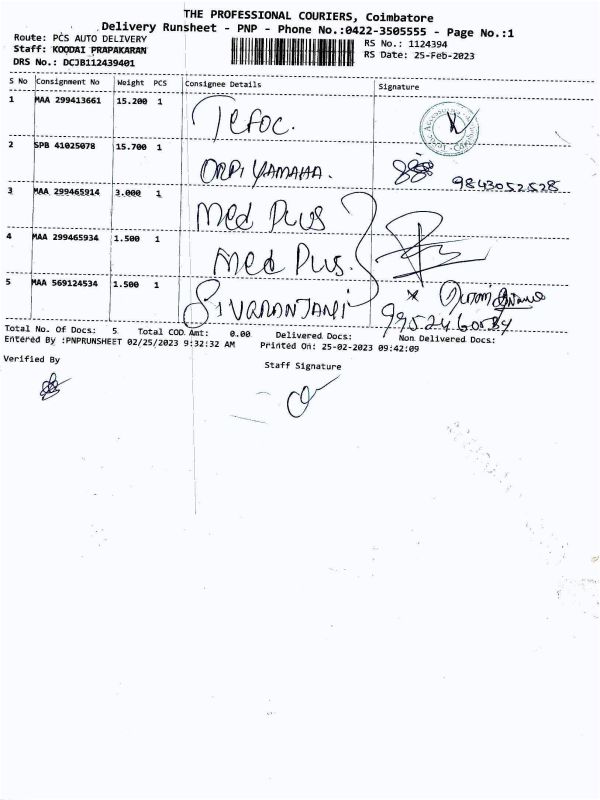 THE PROFESSIONAL COURIERS, Coimbatore
Delivery Runsheet - PNP - Phone No.:0422-3505555 - Page No.:1
Route: PCS AUTO DELIVERY
RS No.: 1124394
Staff: KOODAI PRAPAKARAN
RS Date: 25-Feb-2023
DRS No.: DCJB112439401
S No Consignment No Weight PCS Consignee Details Signature
1 MAA 299413661 15.200 1 Tefoc.
2 SPB 41025078 15.700 1 ORPI YAMAHA. 9843052528
3 MAA 299465914 3.000 1 Med Plus
4 MAA 299465934 1.500 1 Med Plus.
5 MAA 569124534 1.500 1 SIVARANJANI 9952460584
Total No. Of Docs: 5 Total COD Amt: 0.00 Delivered Docs: Non Delivered Docs:
Entered By :PNPRUNSHEET 02/25/2023 9:32:32 AM Printed On: 25-02-2023 09:42:09
Verified By
Staff Signature